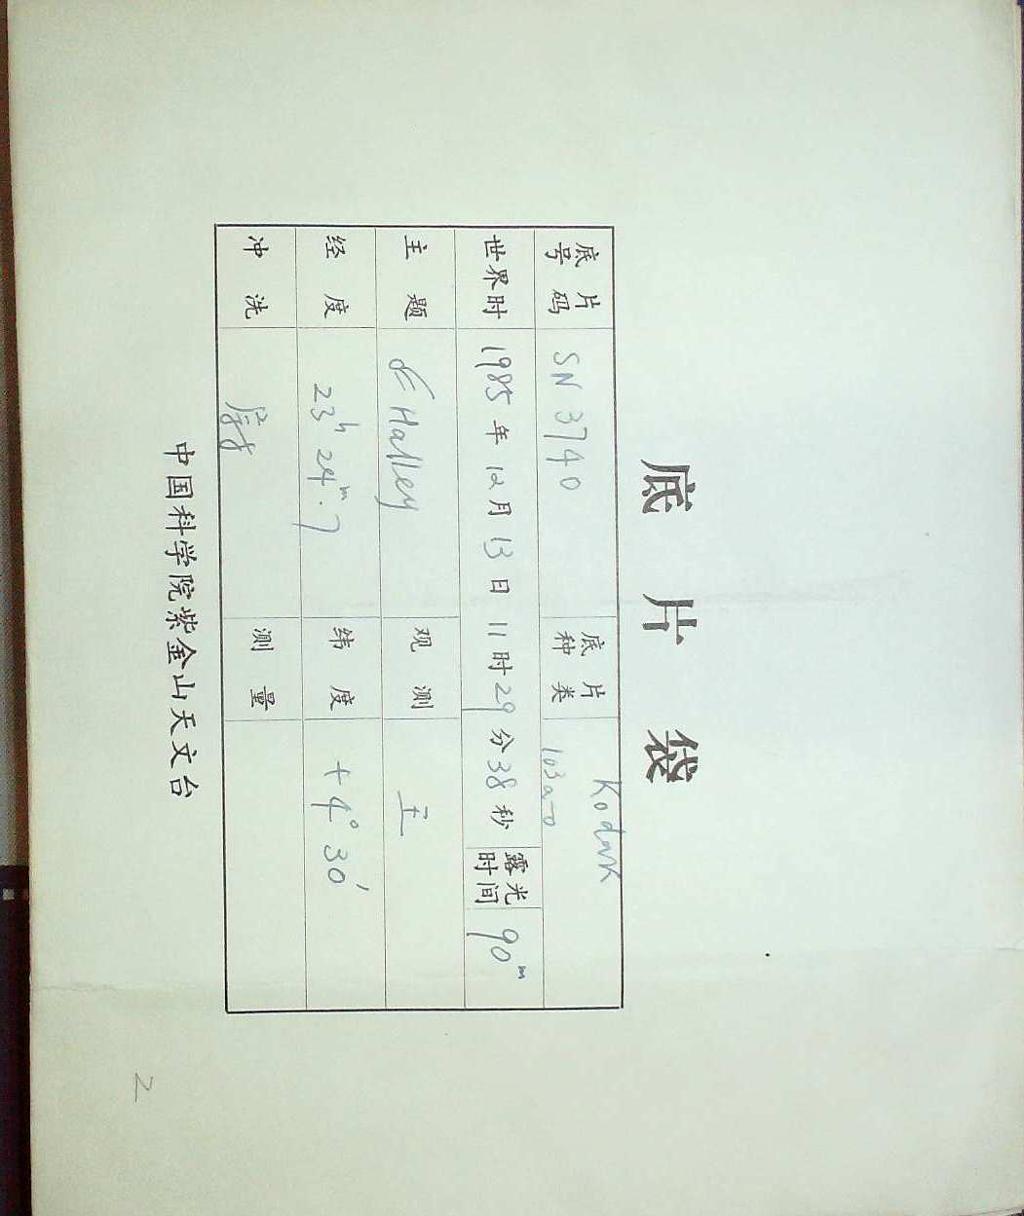 底片袋
底片号码 SN 3740 底片种类 Kodak 103a-0
世界时 1985年12月13日11时29分38秒 露光时间 90m
主题 Halley 观测 王
经度 23h 24m.7 纬度 +4° 30′
冲洗 测量
中国科学院紫金山天文台
2